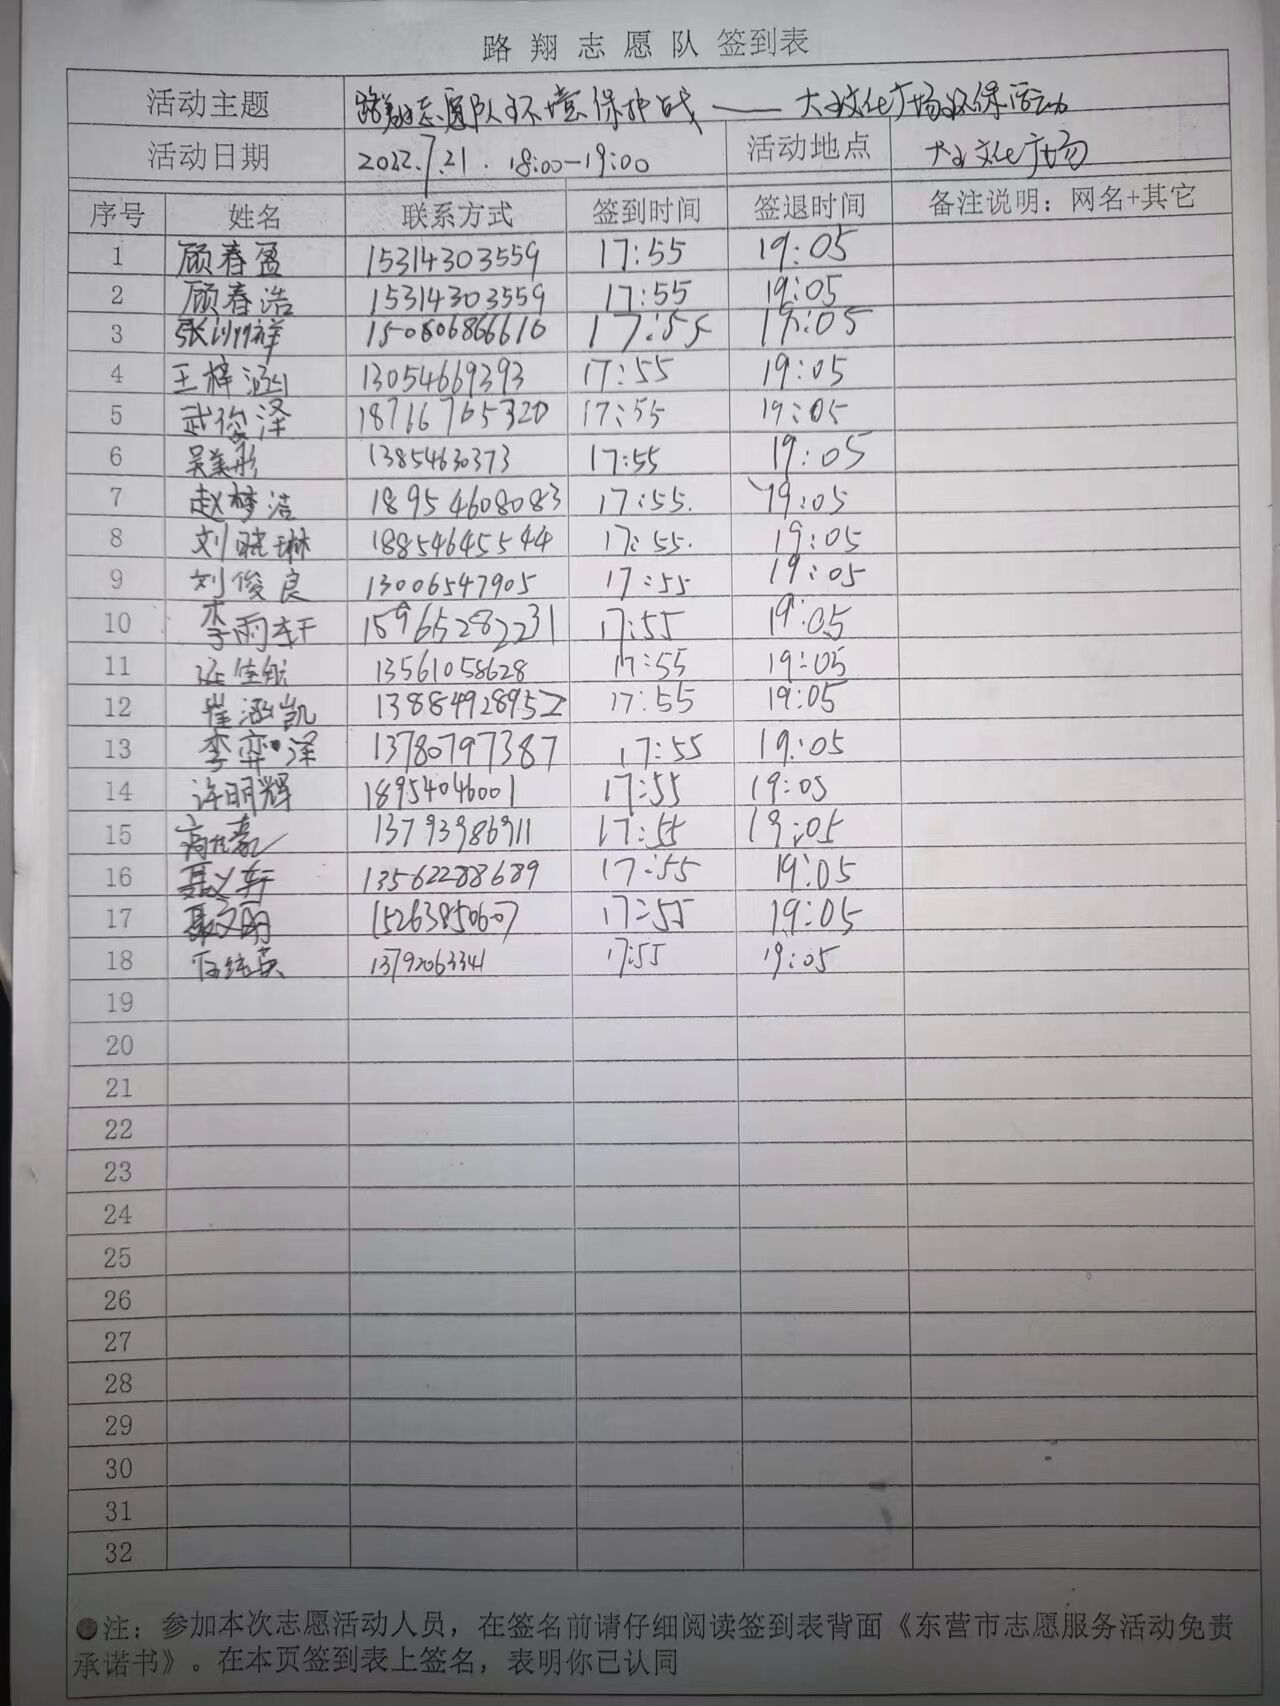 路翔志愿队 签到表
活动主题 路翔志愿队环境保护战——大王文化广场环保活动
活动日期 2022.7.21. 18:00-19:00 活动地点 大王文化广场
序号 姓名 联系方式 签到时间 签退时间 备注说明：网名+其它
1 顾春盈 15314303559 17:55 19:05
2 顾春浩 15314303559 17:55 19:05
3 150806866610 17:55 19:05
4 王梓涵 13054669393 17:55 19:05
5 武俊泽 18716765320 17:55 19:05
6 吴美彤 13854630373 17:55 19:05
7 赵梦洁 18954608083 17:55. 19:05
8 刘晓琳 18854645544 17:55. 19:05
9 刘俊良 13006547905 17:55 19:05
10 李雨轩 15965282231 17:55 19:05
11 13561058628 17:55 19:05
12 崔涵凯 13884928952 17:55 19:05
13 李弈泽 13780797387 17:55 19:05
14 许明辉 18954046001 17:55 19:05
15 13793986911 17:55 19:05
16 聂义轩 13562288689 17:55 19:05
17 聂文明 15263850607 17:55 19:05
18 13792063341 17:55 19:05
19
20
21
22
23
24
25
26
27
28
29
30
31
32
●注：参加本次志愿活动人员，在签名前请仔细阅读签到表背面《东营市志愿服务活动免责
承诺书》。在本页签到表上签名，表明你已认同